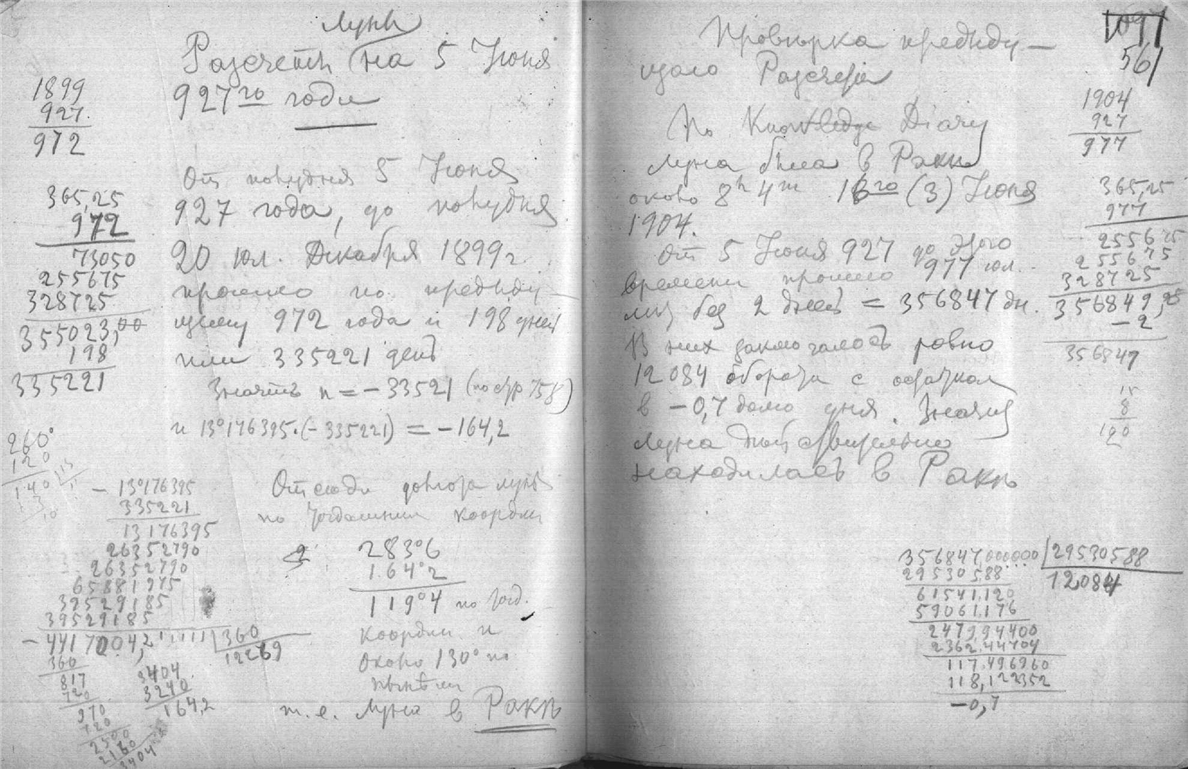 Луны
Разсчетъ на 5 Іюня
927го года
1899
927.
972
От полудня 5 Іюня
927 года, до полудня
20 юл. Декабря 1899 г.
прошло по предыду-
щему 972 года и 198 дней
или 335221 день
Значитъ n = -33521 (по стр 758)
и 13°176395·(-335221) = -164,2
365,25
972
73050
255675
328725
35502300
198
335221
260°
120
140
- 13°176395
335221
13176395
26352790
26352790
65881975
39529185
39529185
-44170042, 360
360 12269
817
720
970
720
2500
2160
3404
3404
3240
1642
Отсюда долгота луны
по тогдашним коорди
283°6
164°2
119°4 по тогд.
коорди и
около 130° по
нынѣшн
т.е. Луна в Ракѣ
1097
561
Провѣрка предыду-
щаго Разсчета
1904
927
977
По Knowledge Diary
луна была в Ракѣ
около 8h 4m 16го (3) Іюня
1904.
От 5 Іюня 927 до этого
времени прошло 977 юл.
лѣт без 2 дней = 356847 дн.
В них заключалось ровно
12084 оборота с остатком
в -0,7 доли дня. Значит
Луна действительно
находилась в Ракѣ
365,25
977
255675
255675
328725
356849,25
-2
356847
15
8
120
356847000000 29530588
29530588 12084
61541,120
59061,176
247994400
2362,44704
117,496960
118,122352
-0,7